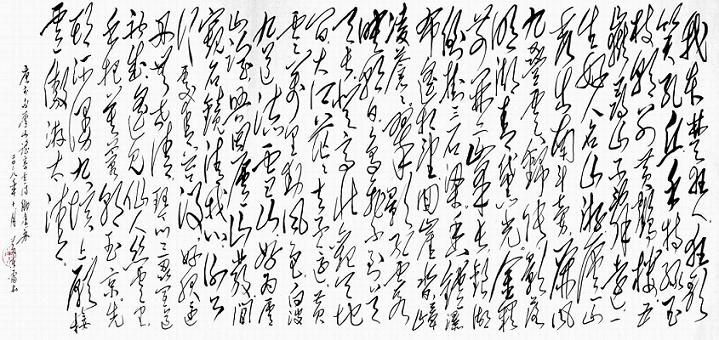 我本楚狂人狂歌
笑孔丘手持绿玉
杖朝别黄鹤楼五
岳寻仙不辞远一
生好入名山游庐山
秀出南斗旁屏风
九叠云锦张影落
明湖青黛光金阙
前开二峰长银河
倒挂三石梁香炉瀑
布遥相望回崖沓嶂
凌苍苍翠影红霞
映朝日鸟飞不到吴
天长登高壮观天地
间大江茫茫去不还黄
云万里动风色白波
九道流雪山好为庐
山谣兴因庐山发闲
窥石镜清我心谢公
行处苍苔没早服还
丹无世情琴心三叠道
初成遥见仙人彩云里
手把芙蓉朝玉京先
期汗漫九垓上愿接
卢敖游太清
唐李白庐山谣寄卢侍御虚舟
年十月